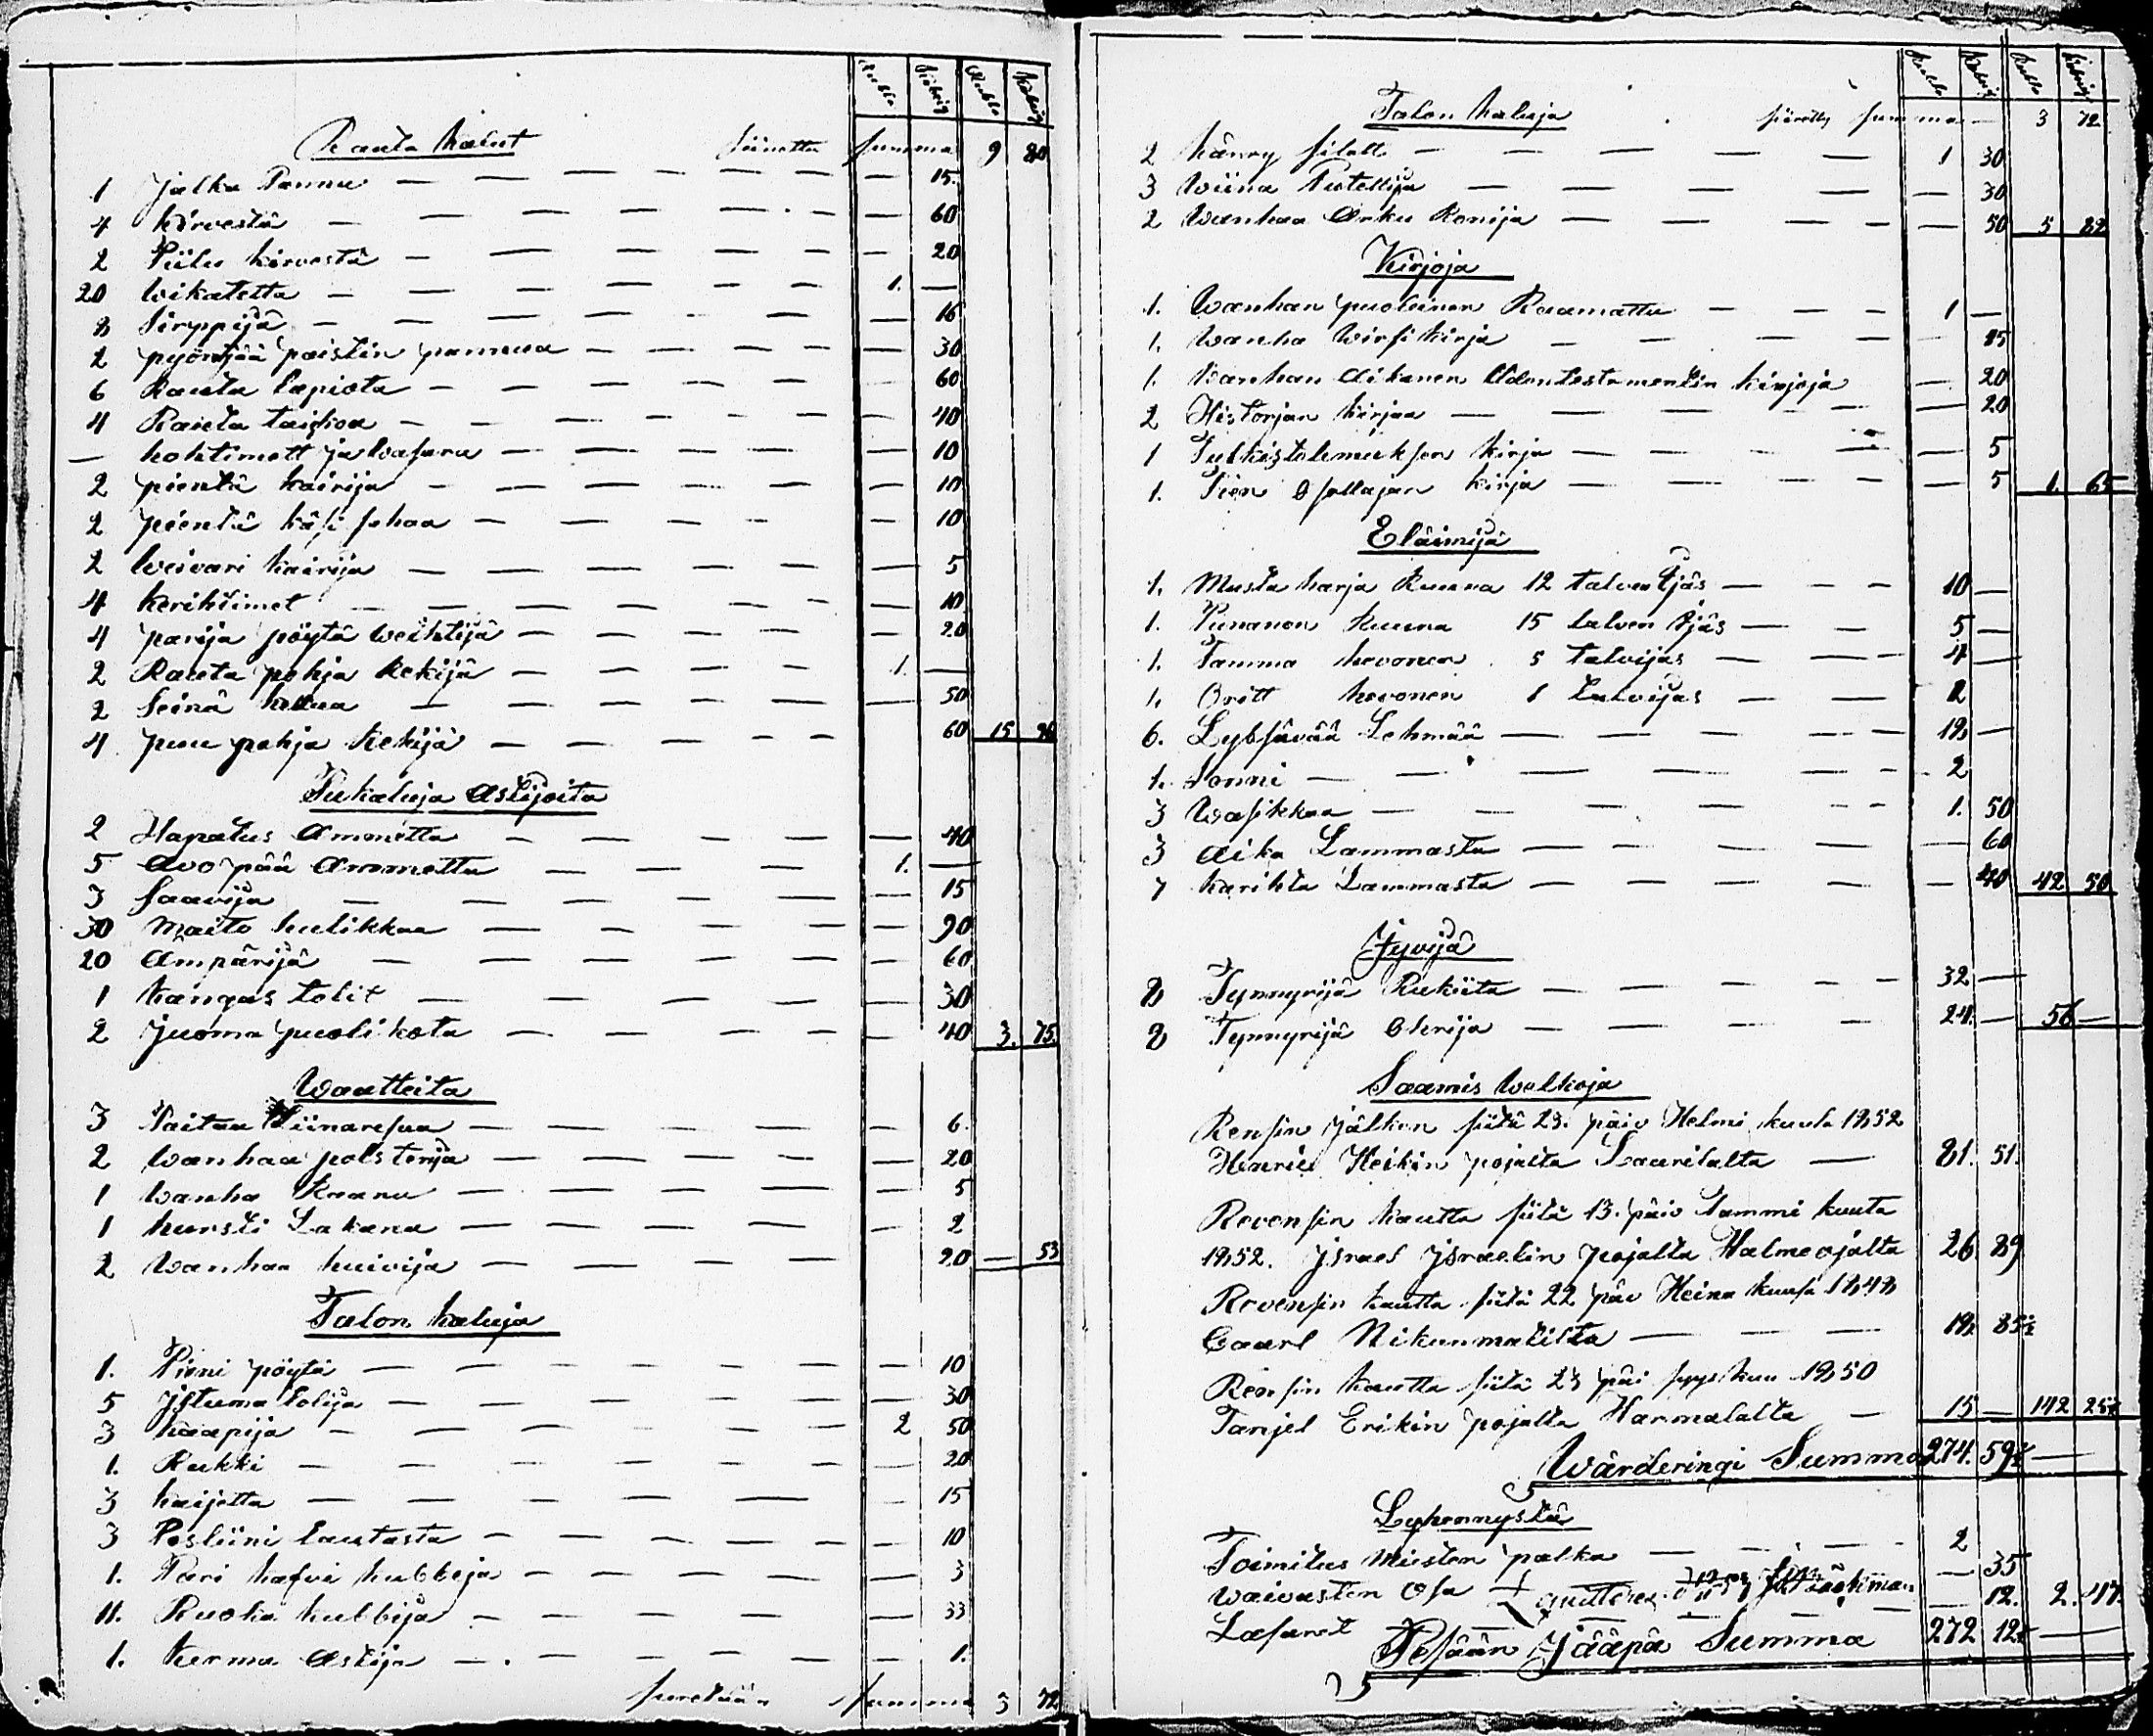 Rubla Kobeig Rubla Kobeig
Rauta Kalut Siirretty summa 9 80
1 Jalka Pannu — 15.
4 kirvestä — 60
2 Piilu kirvestä — 20
20 Wikatetta 1. —
8 Sirppijä — 16
2 pyörijää paistin pannua — 30
6 Rauta lapiota 60
4 Rauta taikoa — 40
— hohtimett ja Wasara — 10
2 pientä kairija — 10
2 pientä käsi sahaa — 10
2 Weivari kairija — 5
4 kerihtimet — 10
4 parija pöytä Weihtijä — 20
2 Rauta pohja Rekijä 1. —
2 Seinä kelloa — 50
4 puu pohja Rekijä 60 15 96
Pukaluja Astijoita
2 Hapatus Ammetta — 40
5 Avo pää Ammetta 1. —
3 Saavija — 15
30 Maito hulikkaa — 90
20 Ampärijä — 60
1 kangas tolit — 30
2 Juoma puolikota — 40 3. 75.
Waatteita
3 Paitaa Liinaresua — 6.
2 Wanhaa polsterija — 20
1 Wanha Raanu — 5
1 hursti Lakana — 2
2 Wanhaa huivija 20 — 53
Talon kaluja
1. Pieni pöytä — 10
5 Jstuma tolija — 30
3 kaapija 2 50
1. Rukki — 20
3 kaijetta — 15
3 Posliini lautasta — 10
1. Pari kasvi kubbeja — 3
11. Ruoka kubbija — 33
1. kerma astija — 1.
siiretään summa 3 72
Rubla Kobeig Rubla Kobeig
Talon kaluja siiretty summa — 3 72
2 känny silatt — 1 30
3 Wiina Putellija — 30
2 Wanhaa Arku Ronija — 50 5 82
Kirjoja
1. Wanhan puoleinen Raamattu 1 —
1. Wanha Wirsikirja 15
1. Wanhan Aikanen Udentestamentin kirjoja — 20
2 Historjan kirjaa — 20
1 Julkistolemuksen kirja — 5
1. Tien Osottajan kirja — 5 1. 65
Eläimijä
1. Musta harja Ruuna 12 talven ijäs — 10 —
1. Punanen Ruuna 15 talven ijäs — 5 —
1. Tamma hevonen 5 talvijas — 4 —
1. Oritt hevonen 1 talvijas — 2
6. Lybsävää Lehmää — 18 —
1. Sonni — 2
3 Wasikkaa — 1. 50
3 Aika Lammasta — 60
7 karihta Lammasta — 40 42 50
Jyvijä
8 Tynnyrijä Rukiita — 32 —
8 Tynnyrijä Ohrija — 24. — 56 —
Saamis Welkoja
Rensin jälken siitä 23. päiv Helmi kuuta 1852
Heikin pojalta Laurilalta — 81. 51.
Revensin kautta siitä 13. päiv Tammi kuuta
1852. Jsrael Jsraelin pojalta Halmeojalta 26 89
Revensin kautta siitä 22 päiv Heina kuusa 1848
Caarl Nikunmatilta — 18 85½
Revensin kautta siitä 23 päi syyskuu 1850
Tanjel Erikin pojalta Harmalalta — 15 — 142 25½
Wärderingi Summa 274. 59½ —
Lyhennystä
Toimitus Miesten palka — 2
Waivasten Osa — 35
Lasaret — 12. 2. 47.
Pesään Jääpä Summa 272 12½ —